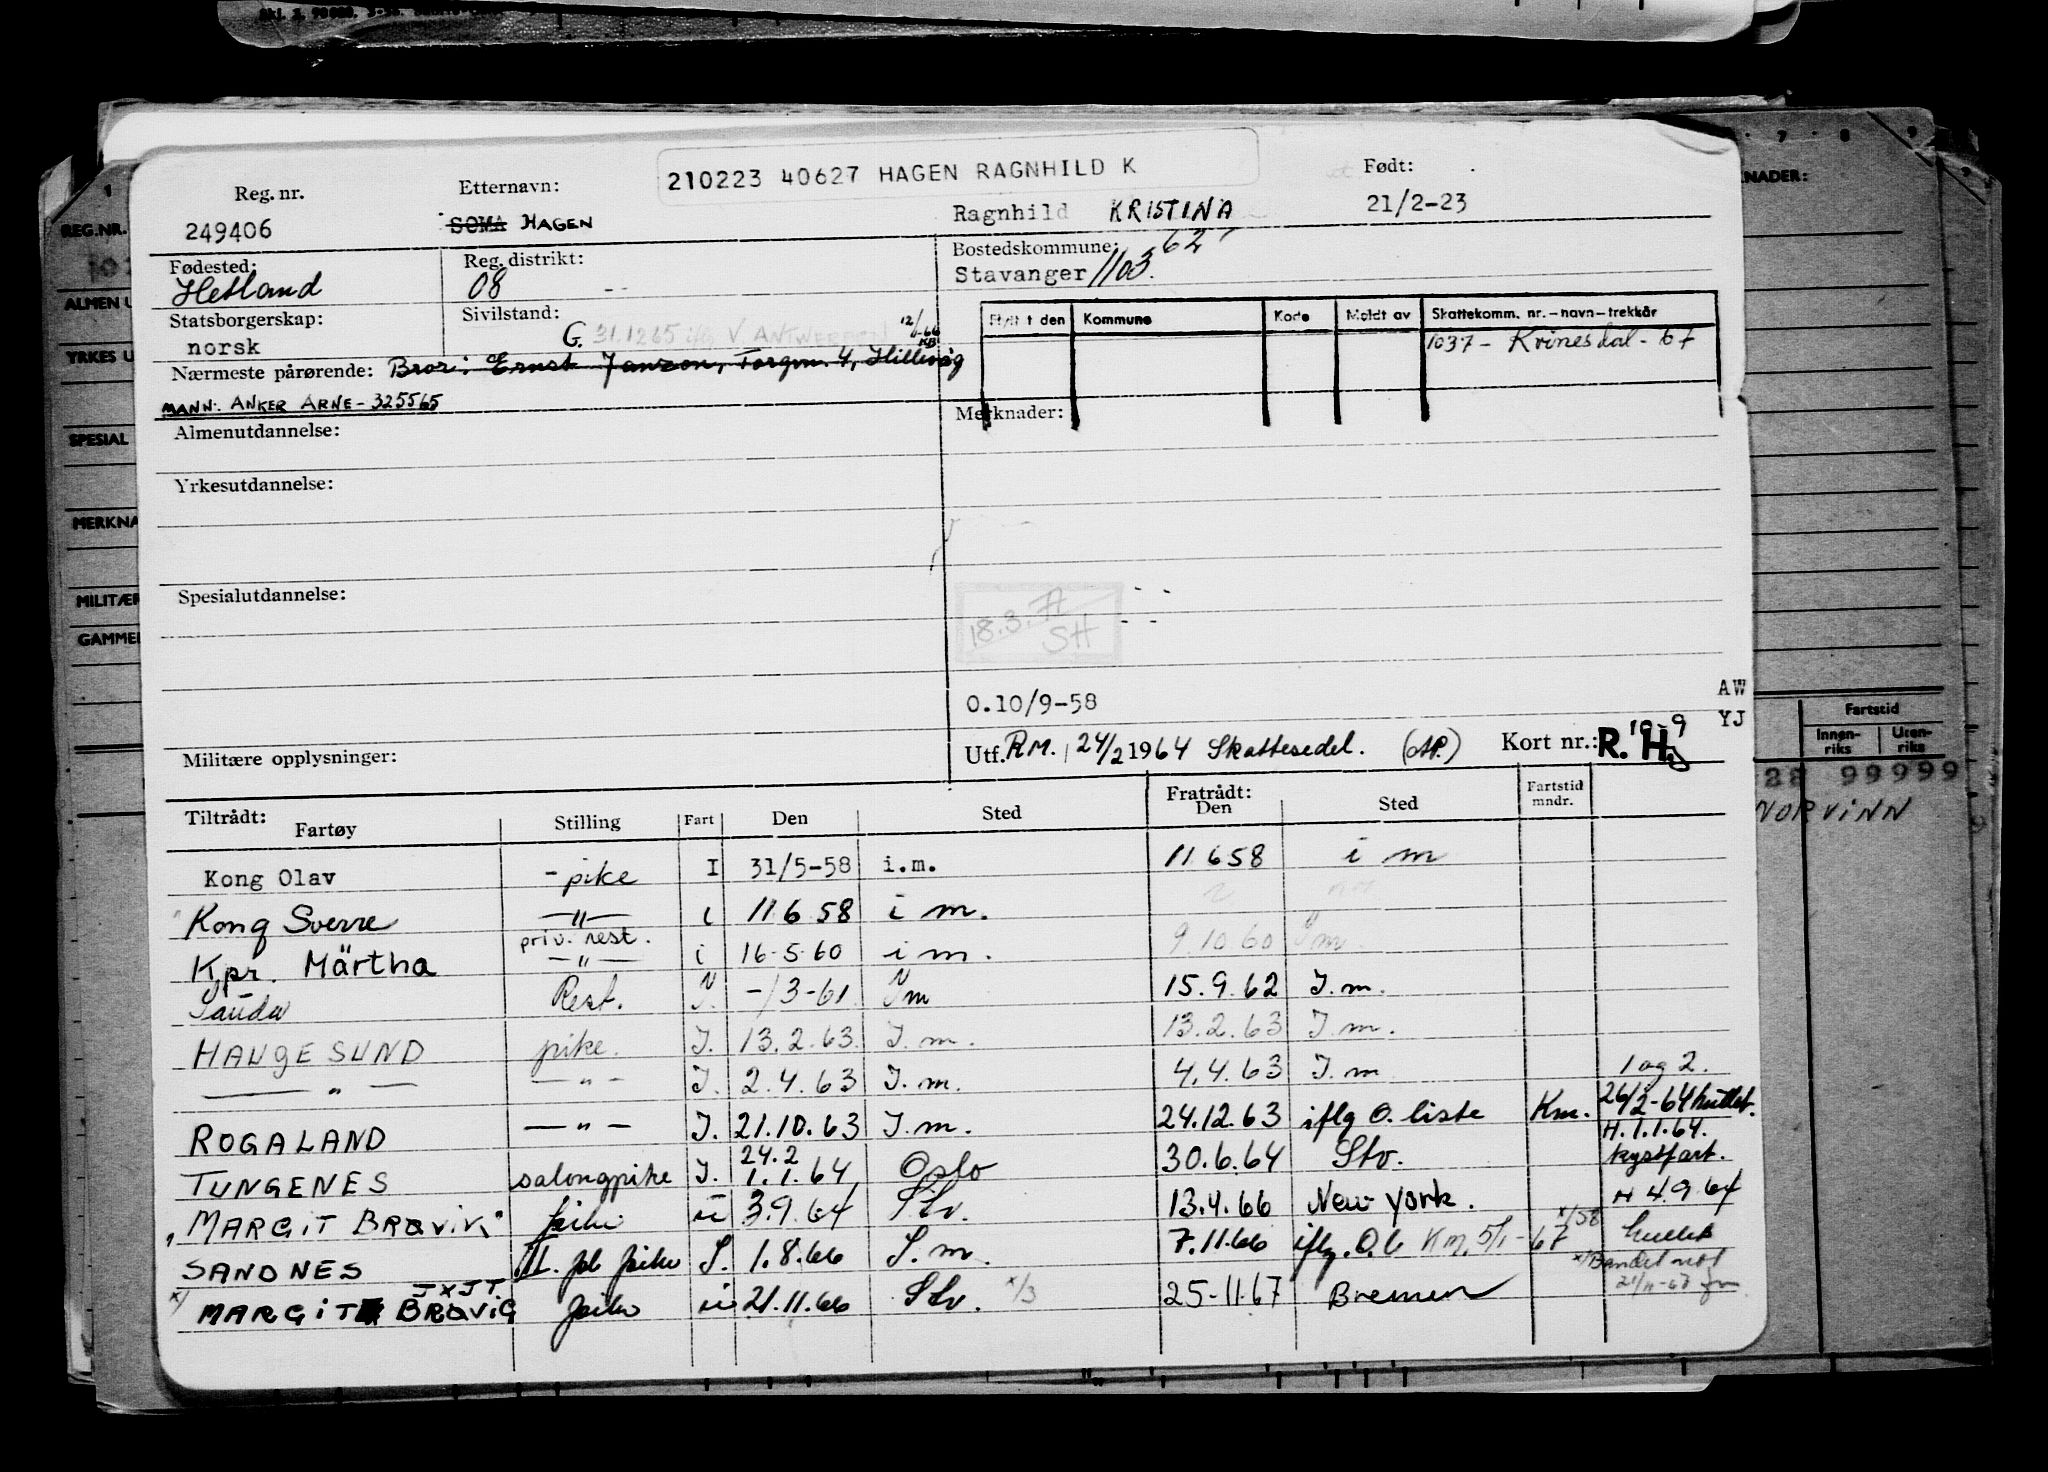 210223 40627 HAGEN RAGNHILD K
Reg. nr. Etternavn: Født:
249406 SOMA HAGEN Ragnhild KRISTINA 21/2-23
Fødested: Reg. distrikt: Bostedskommune: 62
Hetland 08 Stavanger 1103.
Statsborgerskap: Sivilstand:
norsk G. 31.12 65 V. ANTWERPEN 12/1-66 KB
Nærmeste pårørende: Bror: Ernst Janzon, Torgvn. 4, Hillevåg
MANN: ANKER ARNE - 325565
Flytt t den Kommune Kode Meldt av Skattekomm. nr. – navn – trekkår
1037 - Kvinesdal - 67
Merknader:
Almenutdannelse:
Yrkesutdannelse:
Spesialutdannelse:
18.3.71
SH
0.10/9-58
AW
YJ
Militære opplysninger:
Utf. RM. 24/2 1964 Skattesedel. Kort nr.:
Tiltrådt: Fratrådt: Fartstid
Fartøy Stilling Fart Den Sted Den Sted mndr.
Kong Olav - pike I 31/5-58 i.m. 11 6 58 i m
Kong Sverre —"— i 11 6 58 i m.
priv. rest.
Kpr. Märtha —"— i 16-5-60 i m. 9.10 60 I m.
Sauda Rest. I. -/3-61 I m 15.9.62 I.m.
HAUGESUND pike. I. 13.2.63. I.m. 13.2.63 I.m.
— " — — " — I. 2.4.63 I.m. 4.4.63 I.m 1 og 2.
ROGALAND — " — I. 21.10.63 I.m. 24.12.63 iflg O. liste Km. 26/2-64 hullet.
TUNGENES salongpike I. 24.2 1.1.64 Oslo 30.6.64 Stv. H. 1.1.64. kystfart.
"MARGIT BRØVIK" pike u 3.9.64 Stv. 13.4.66 New York. H 4.9.64
SANDNES pike I. 1.8.66 I.m. 7.11.66 iflg. O.l. Km. 5/1-67 x/58 hullet
x/ MARGIT BRØVIG JXJT. pike u 21.11.66 Stv. x/3 25-11.67 Bremen
REG.NR.
ALMEN U
YRKES U
SPESIAL
MERKNA
MILITÆR
GAMMEL
KNADER:
Fartstid
Innenriks Utenriks
28 99999
NORVINN